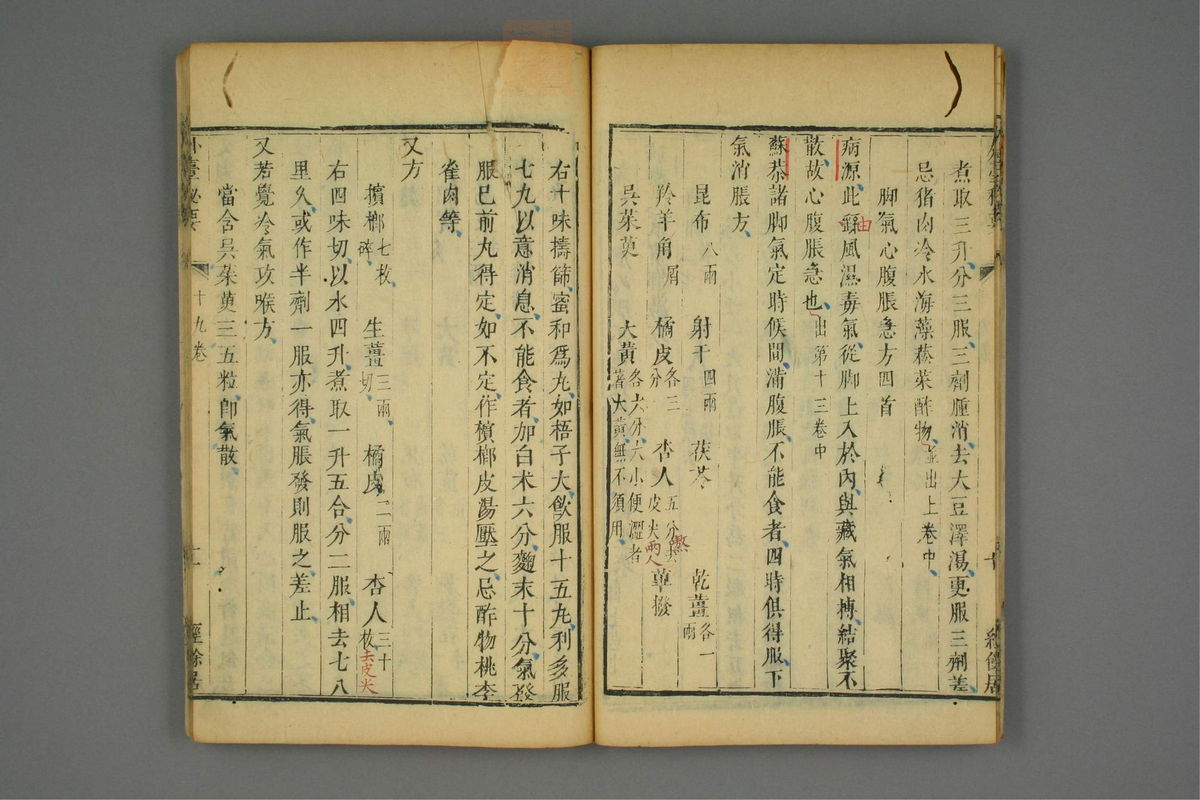 煮取三升分三服三劑腫消去大豆澤湯更服三劑差
忌猪肉冷水海藻菘菜酢物並出上卷中
脚氣心腹脹急方四首
病源此繇由風濕毒氣從脚上入於內與藏氣相搏結聚不
散故心腹脹急也出第十三卷中
蘇恭諸脚氣定時候間滿腹脹不能食者四時俱得服下
氣消脹方
昆布八兩 射干四兩 茯苓 乾薑各一兩
羚羊角屑 橘皮各三分 杏人五分去皮尖兩人熬 蓽撥
吳茱萸 大黃各六分六小便澀者著大黃無不須用
右十味擣篩蜜和爲丸如梧子大飲服十五丸利多服
七丸以意消息不能食者加白术六分麴末十分氣發
服已前丸得定如不定作檳榔皮湯壓之忌酢物桃李
雀肉等
又方
檳榔七枚碎 生薑三兩切 橘皮二兩 杏人三十枚去皮尖
右四味切以水四升煮取一升五合分二服相去七八
里久或作半劑一服亦得氣脹發則服之差止
又若覺冷氣攻喉方
當含吳茱萸三五粒卽氣散
外臺秘要 十九卷 十一 經餘居